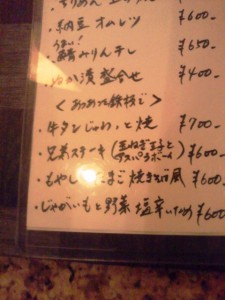 ・納豆オムレツ ¥600-
うまい!
・みりん干し ¥650-
・ぬか漬 盛合せ ¥400-
<あつあつ鉄板で>
・牛タンじゅわっと焼 ¥700-
・兄弟ステーキ(玉ねぎ王子と ¥600-
アスパラボーイ)
・もやし たまご 焼きそば風 ¥600-
・じゃがいもと野菜 塩辛いため ¥600